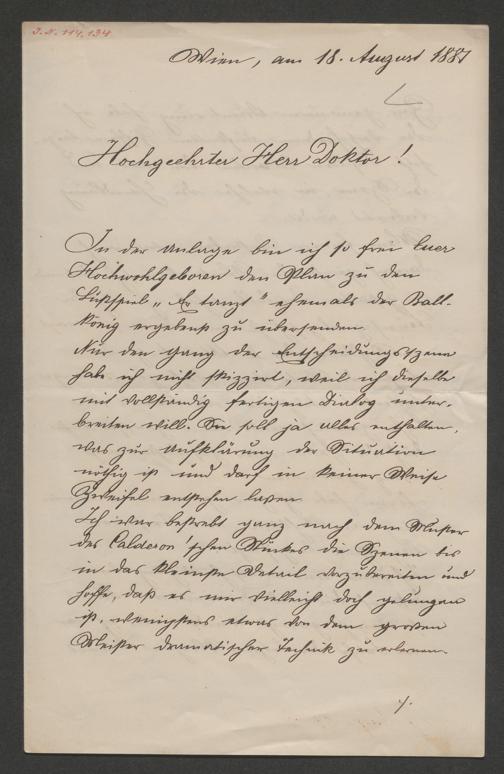 J.N. 114.134
Wien, am 18. August 1887
Hochgeehrter Herr Doktor!
In der Anlage bin ich so frei Euer
Hochwohlgeboren den Plan zu dem
Lustspiel „Er tanzt" ehemals der Ball-
könig ergebenst zu übersenden
Nur den Gang der Entscheidungsszene
habe ich nicht skizzirt, weil ich dieselbe
mit vollständig fertigem Dialog unter-
breiten will. Sie soll ja alles enthalten,
was zur Aufklärung der Situation
nöthig ist und darf in keiner Weise
Zweifel entstehen lassen
Ich war bestrebt ganz nach dem Muster
des Calderon'schen die Szenen bis
in das kleinste Detail vorzubereiten und
hoffe, daß es mir vielleicht doch gelungen
ist, wenigstens etwas von dem großen
Meister dramatischer Technik zu erlernen.
./.